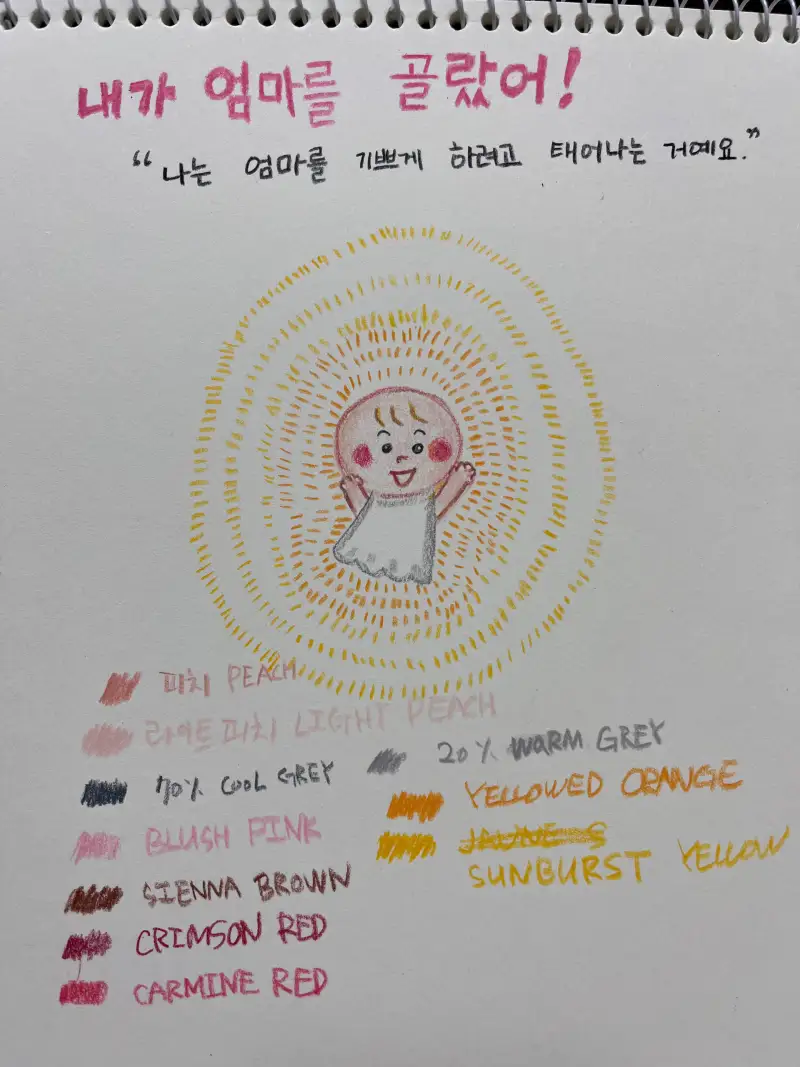 내가 엄마를 골랐어!
“나는 엄마를 기쁘게 하려고 태어나는 거예요.”
피치 PEACH
라이트피치 LIGHT PEACH
70% COOL GREY
BLUSH PINK
SIENNA BROWN
CRIMSON RED
CARMINE RED
20% WARM GREY
YELLOWED ORANGE
SUNBURST YELLOW